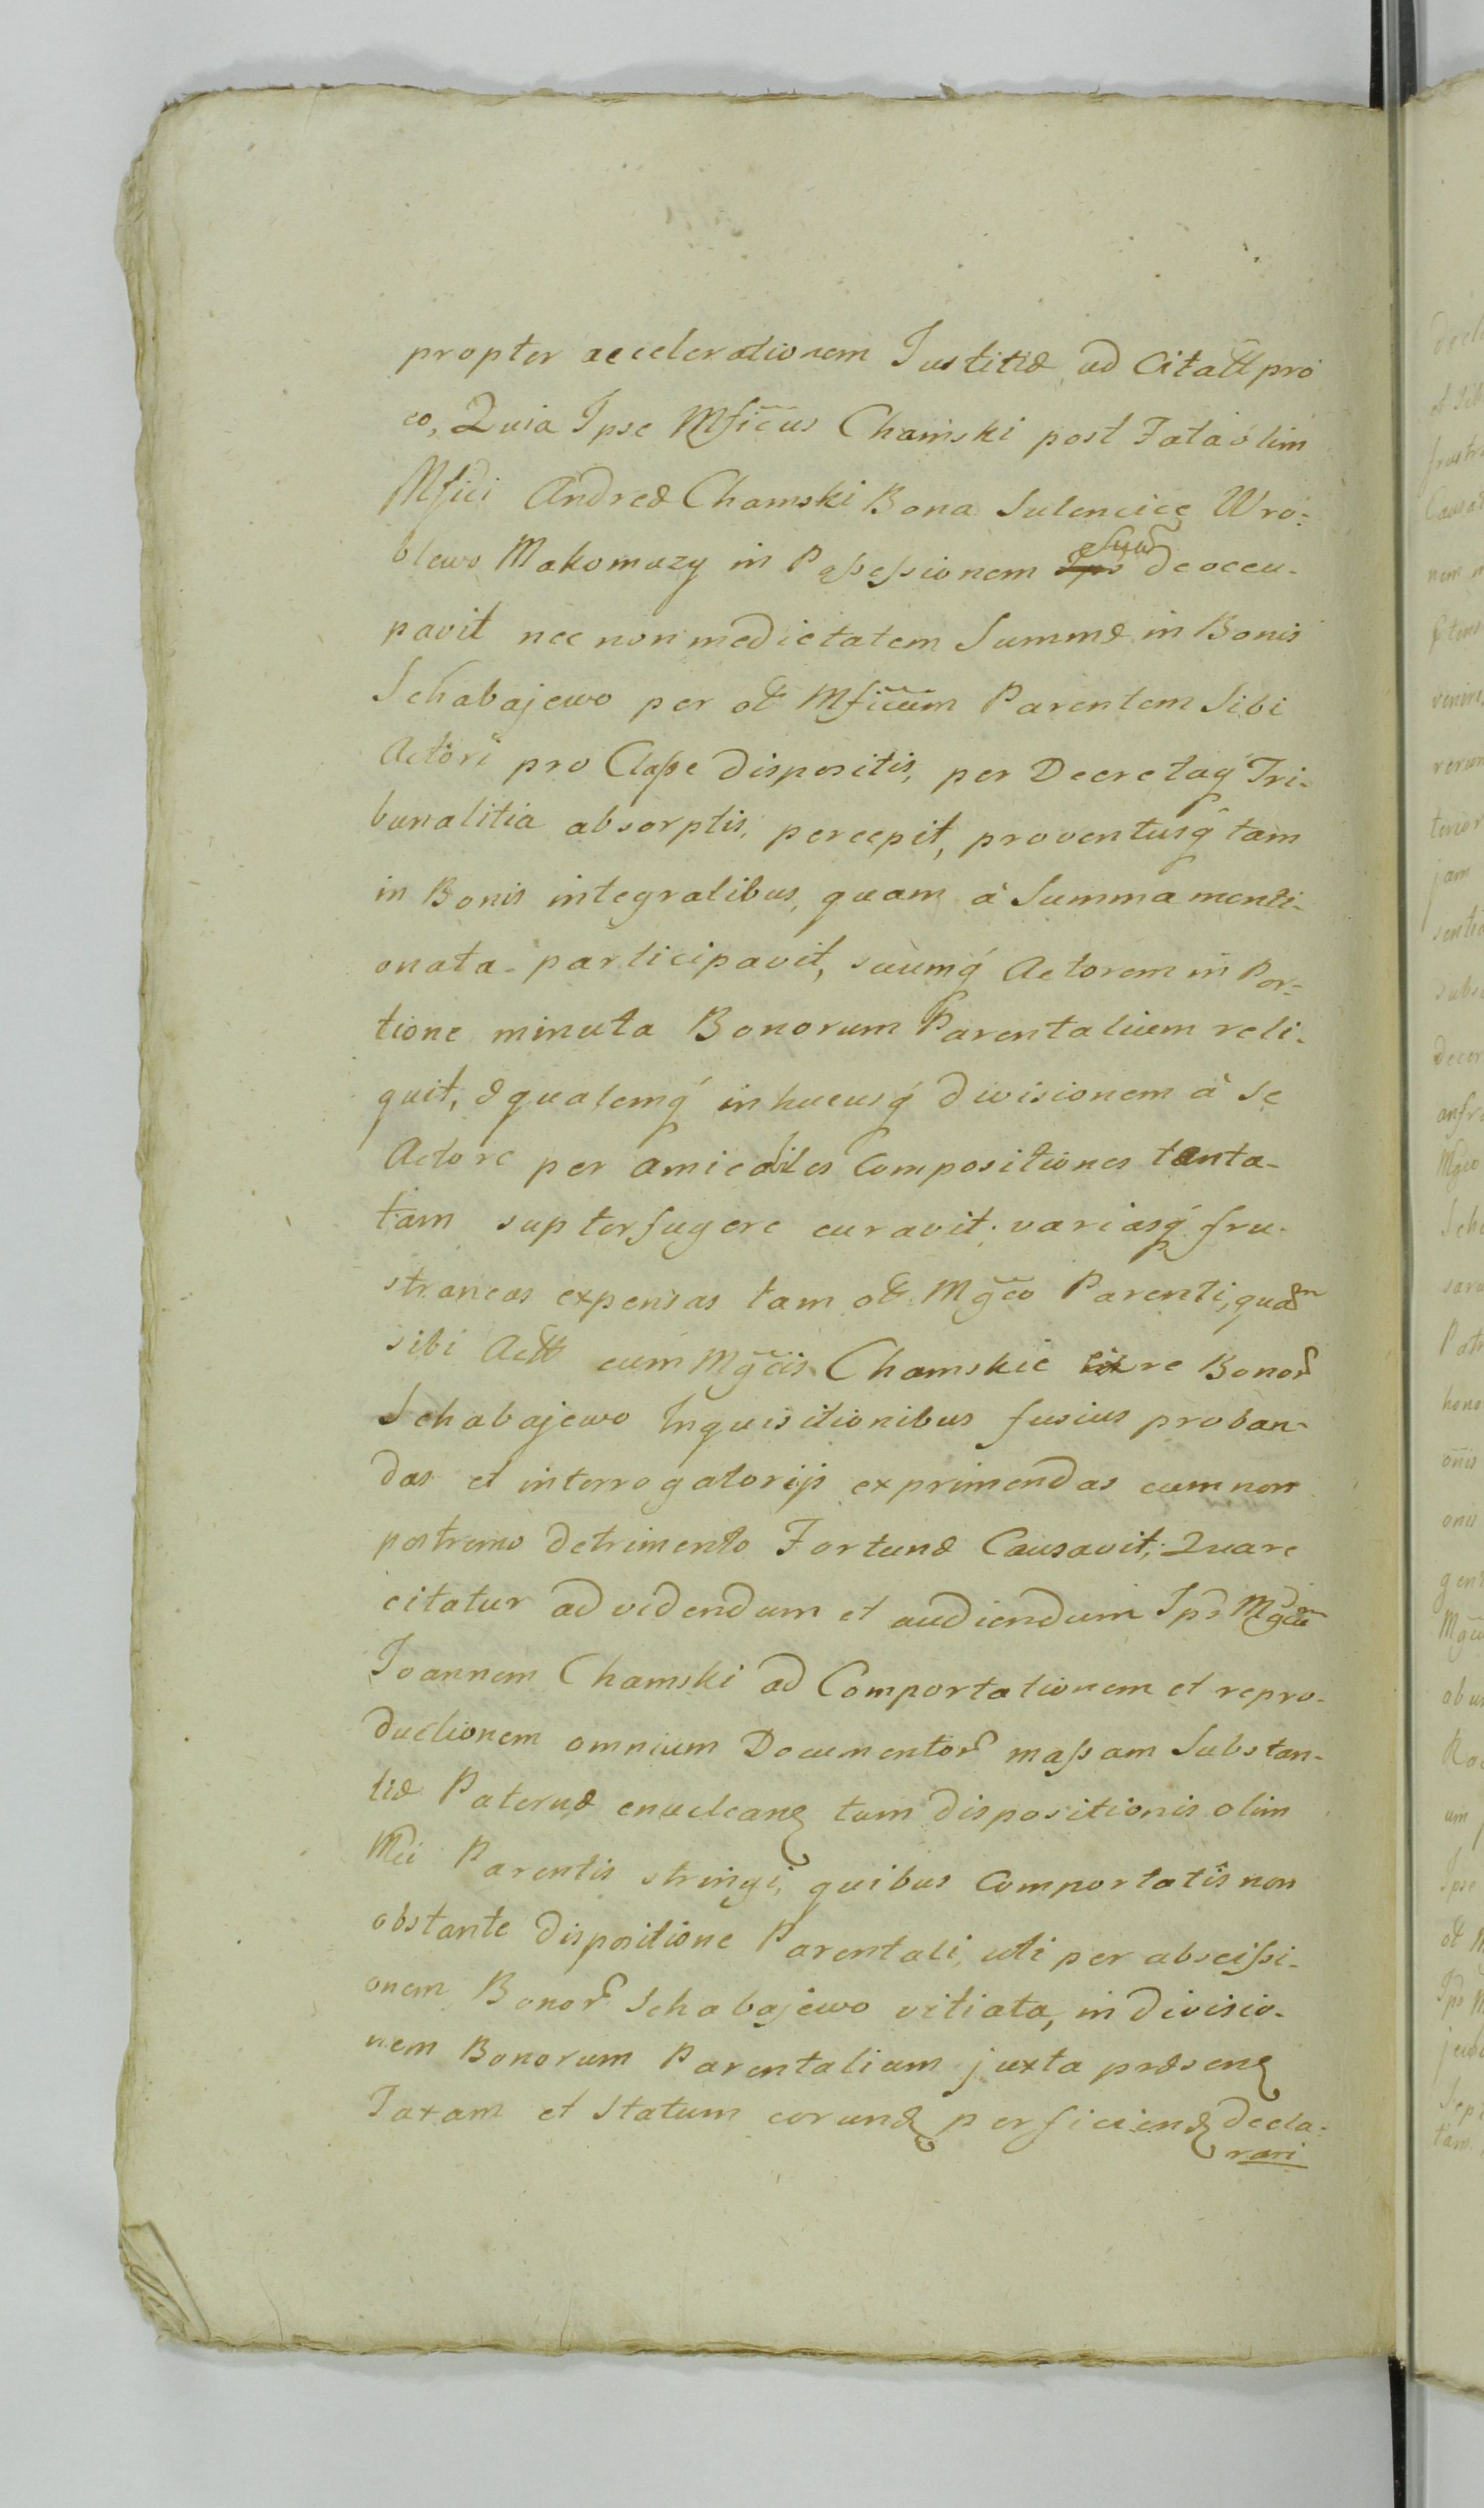 propter accelerationem Justitiæ ad Citatt pro
eo, Quia Ipse Mficus Chamski post Fata olim
Mfici Andreæ Chamski Bona Sulencice Wro-
blewo Makomazy in Possessionem suam deoccu-
pavit nec non medietatem Summæ in Bonis
Schabajewo per ol Mficum Parentem Sibi
Actori pro Classe dispositis, per Decretaq Tri-
bunalitia absorptis, percepit, proventusq tam
in Bonis integralibus, quam à Summa menti-
onata participavit, suumq Actorem in Por-
tione minuta Bonorum Parentalium reli-
quit, æqualemq in hucusq divisionem à se
Actore per amicabiles Compositiones tenta-
tam supterfugere curavit; variasq fru-
straneas expensas tam ol Mgco Parenti, quam
sibi Actt cum Mgcis Chamskie re Bonor
Schabajewo Inquisitionibus fusius proban-
das et interrogatorijs exprimendas cum non
postremo detrimento Fortunæ Causavit; Quare
citatur ad videndum et audiendum Ips Mgcum
Joannem Chamski ad Comportationem et repro-
ductionem omnium Documentor massam Substan-
tiæ Paternæ enucleanq tum dispositionis olim
Mci Parentis stringi, quibus Comportatis non
obstante dispositione Parentali, uti per abscissi-
onem Bonor Schabajewo vitiata, in divisio-
nem Bonorum Parentalium juxta præsenq
Taxam et Statum eorundq perficiendq decla-
rari